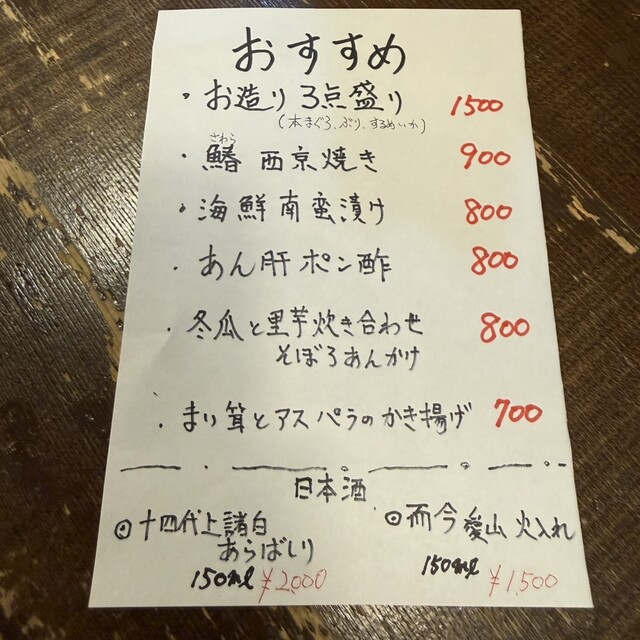 おすすめ
・お造り 3点盛り 1500
(本まぐろ、ぶり、するめいか)
さわら
・鰆 西京焼き 900
・海鮮南蛮漬け 800
・あん肝ポン酢 800
・冬瓜と里芋炊き合わせ 800
そぼろあんかけ
・まい茸とアスパラのかき揚げ 700
日本酒
◎十四代上諸白
あらばしり
150ml ¥2,000
◎而今愛山火入れ
150ml ¥1,500